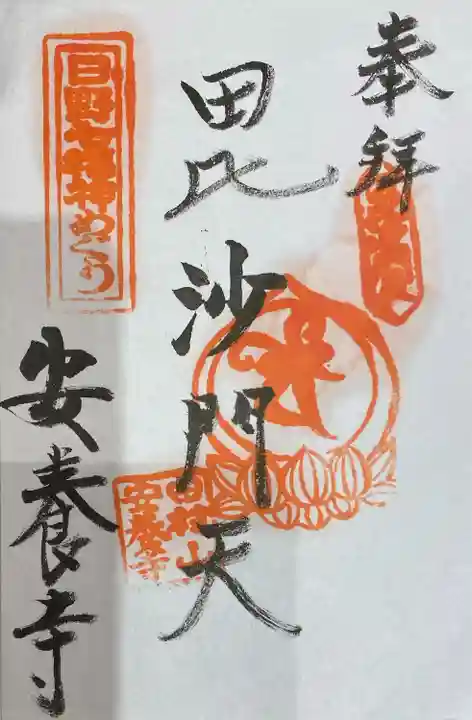 奉拝
毘沙門天
日野七福神めぐり
田村山
安養寺
安養寺